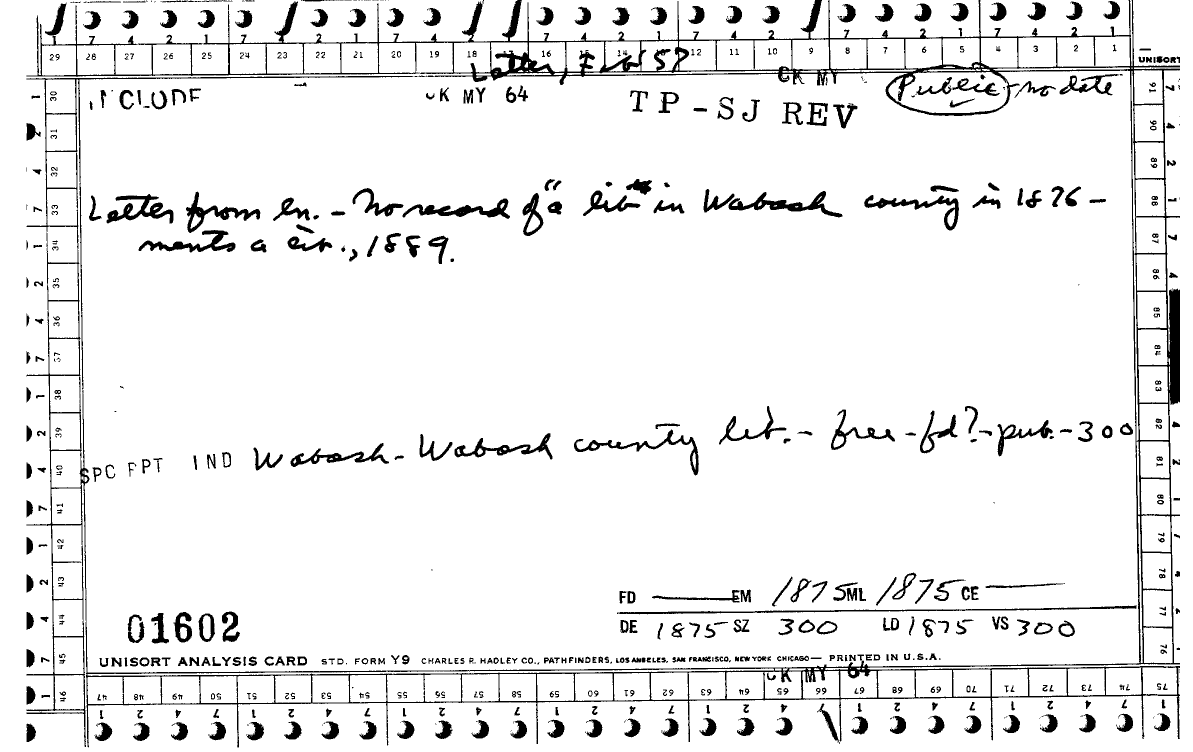 7 4 2 1 7 4 2 1 7 4 2 1 7 4 2 1 7 4 2 1
29 28 27 26 25 24 23 22 21 20 19 18 17 16 15 14 13 12 11 10 9 8 7 6 5 4 3 2 1
UNISORT
Letter, Feb 57
CK MY
INCLUDE
CK MY 64
TP-SJ REV
Public - no date
Letter from ln. - No record of "a lib" in Wabash county in 1876 -
ments a lib., 1889.
SPC RPT IND Wabash - Wabash county lib. - free - fd? - pub. - 300
FD EM 1875 ML 1875 CE
01602
DE 1875 SZ 300 LD 1875 VS 300
UNISORT ANALYSIS CARD STD. FORM Y9 CHARLES R. HADLEY CO., PATHFINDERS, LOS ANGELES, SAN FRANCISCO, NEW YORK CHICAGO — PRINTED IN U.S.A.
CK MY 64
47 48 49 50 51 52 53 54 55 56 57 58 59 60 61 62 63 64 65 66 67 68 69 70 71 72 73 74 75
1 2 4 7 1 2 4 7 1 2 4 7 1 2 4 7 1 2 4 7 1 2 4 7 1 2 4 7 1